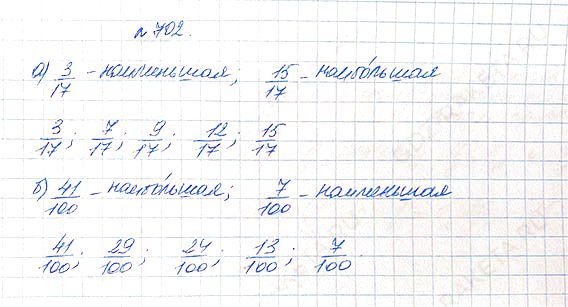 № 702.
а) 3/17 - наименьшая; 15/17 - наибольшая
3/17; 7/17; 9/17; 12/17; 15/17
б) 41/100 - наибольшая; 7/100 - наименьшая
41/100; 29/100; 24/100; 13/100; 7/100